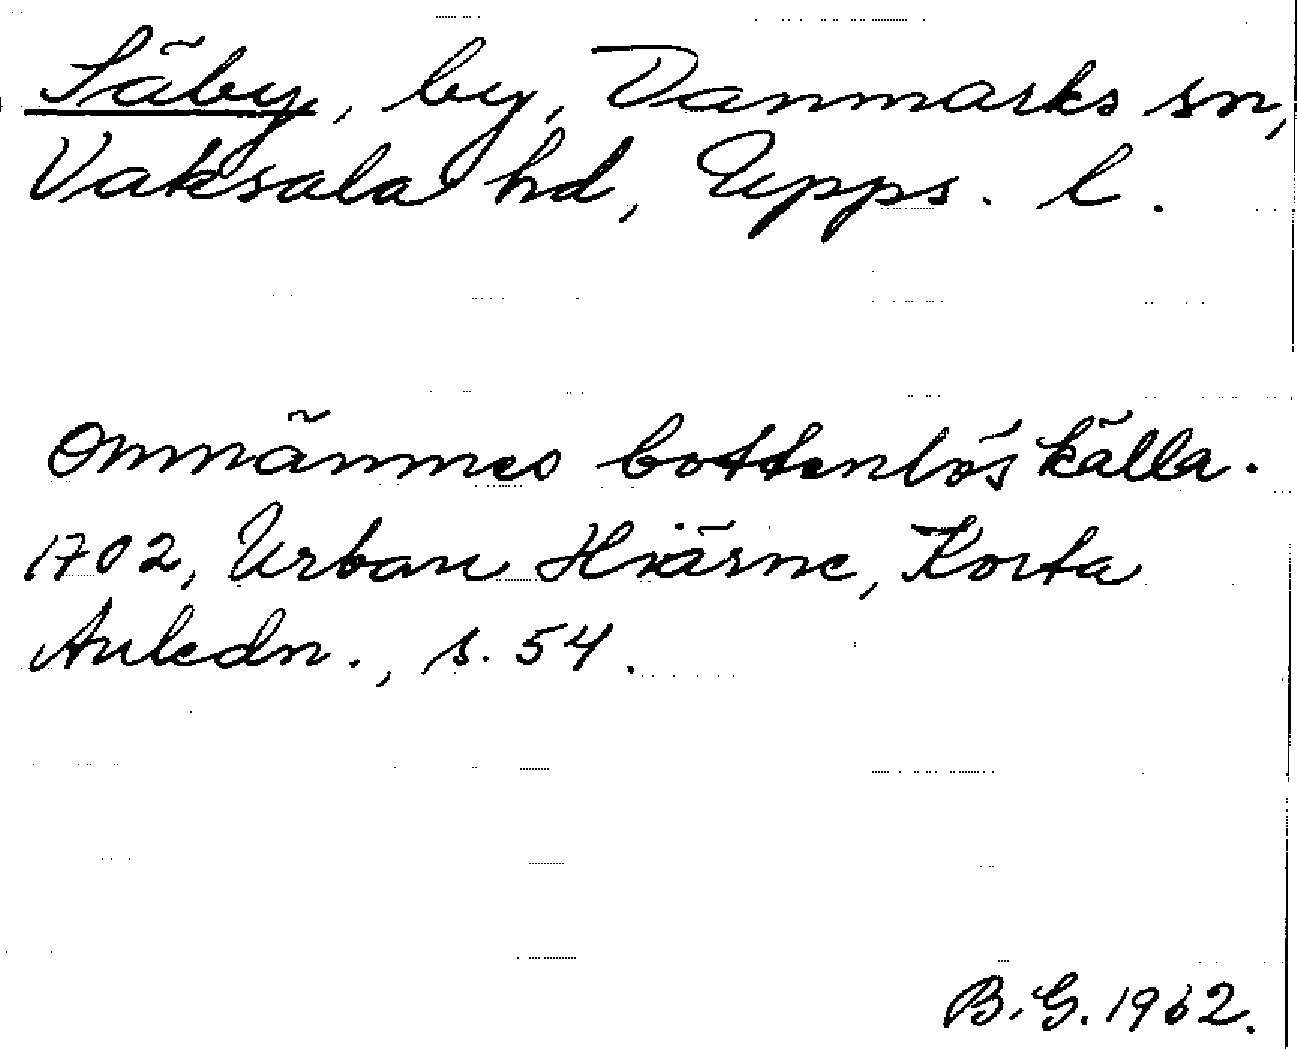 Säby, by, Danmarks sn,
Vaksala hd, Upps. l.
Omnämnes bottenlös källa.
1702, Urban Hiärne, Korta
Anledn., s. 54.
B.G. 1962.